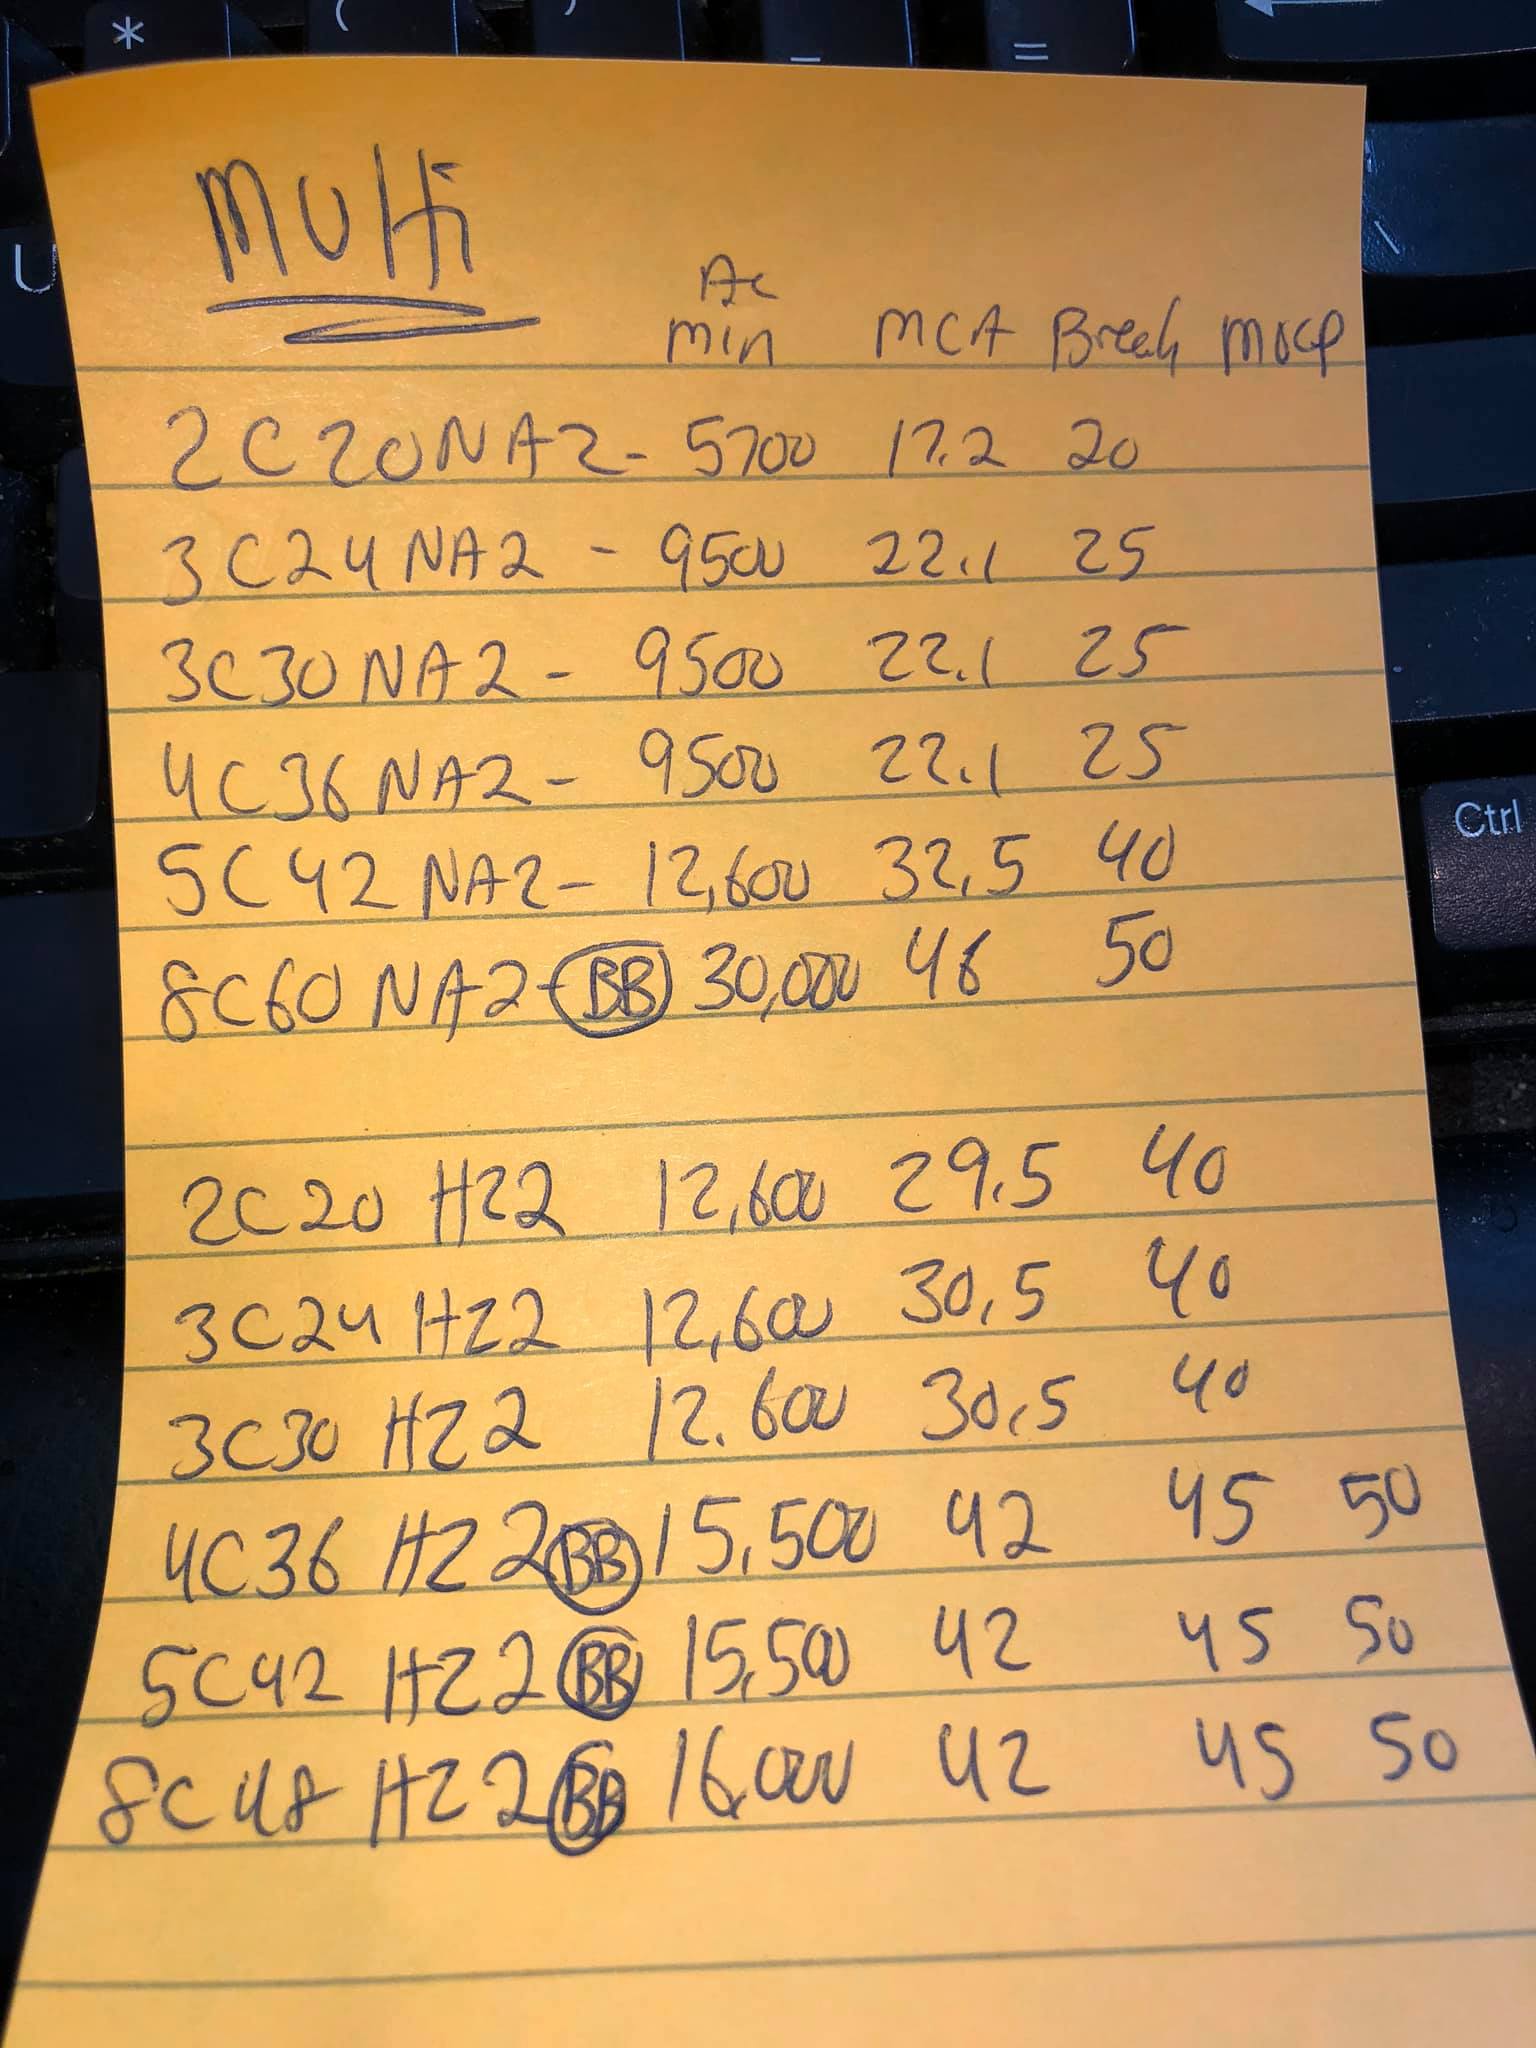 Multi
Ac
min MCA Break MOCP
2C20NA2- 5700 17.2 20
3C24NA2 - 9500 22.1 25
3C30NA2- 9500 22.1 25
4C36NA2- 9500 22.1 25
5C42NA2- 12,600 32.5 40
8C60NA2- BB 30,000 46 50
2C20 HZ2 12,600 29.5 40
3C24 HZ2 12,600 30.5 40
3C30 HZ2 12.600 30.5 40
4C36 HZ2 BB 15,500 42 45 50
5C42 HZ2 BB 15,500 42 45 50
8C48 HZ2 BB 16,000 42 45 50
*
(
)
_
=
U
\
Ctrl